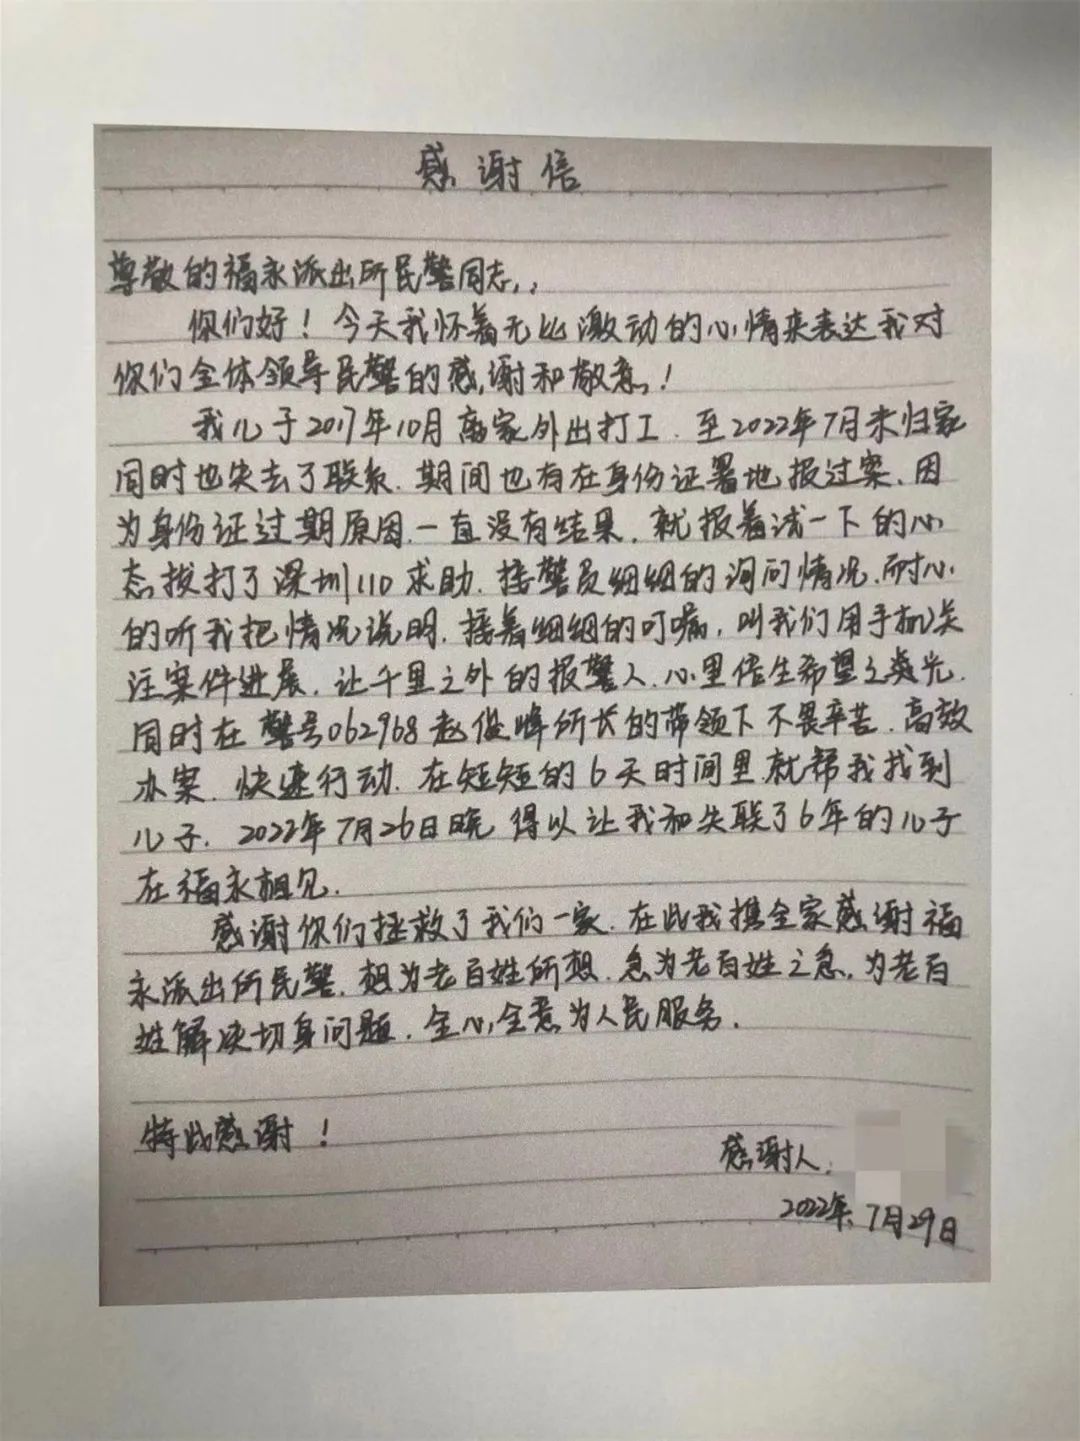 感谢信
尊敬的福永派出所民警同志,,
你们好！今天我怀着无比激动的心情来表达我对
你们全体领导民警的感谢和敬意！
我儿子于2017年10月离家外出打工.至2022年7月未归家
同时也失去了联系.期间也有在身份证署地报过案.因
为身份证过期原因.一直没有结果.就报着试一下的心
态拨打了深圳110求助.接警员细细的询问情况.耐心
的听我把情况说明.接着细细的叮嘱,叫我们用手机关
注案件进展.让千里之外的报警人.心里倍生希望之炎光.
同时在警号062968赵俊峰所长的带领下不畏辛苦.高效
办案.快速行动.在短短的6天时间里就帮我找到
儿子.2022年7月26日晚得以让我和失联了6年的儿子
在福永相见.
感谢你们拯救了我们一家.在此我携全家感谢福
永派出所民警.想为老百姓所想.急为老百姓之急,为老百
姓解决切身问题.全心全意为人民服务.
特此感谢！
感谢人:
2022年7月29日